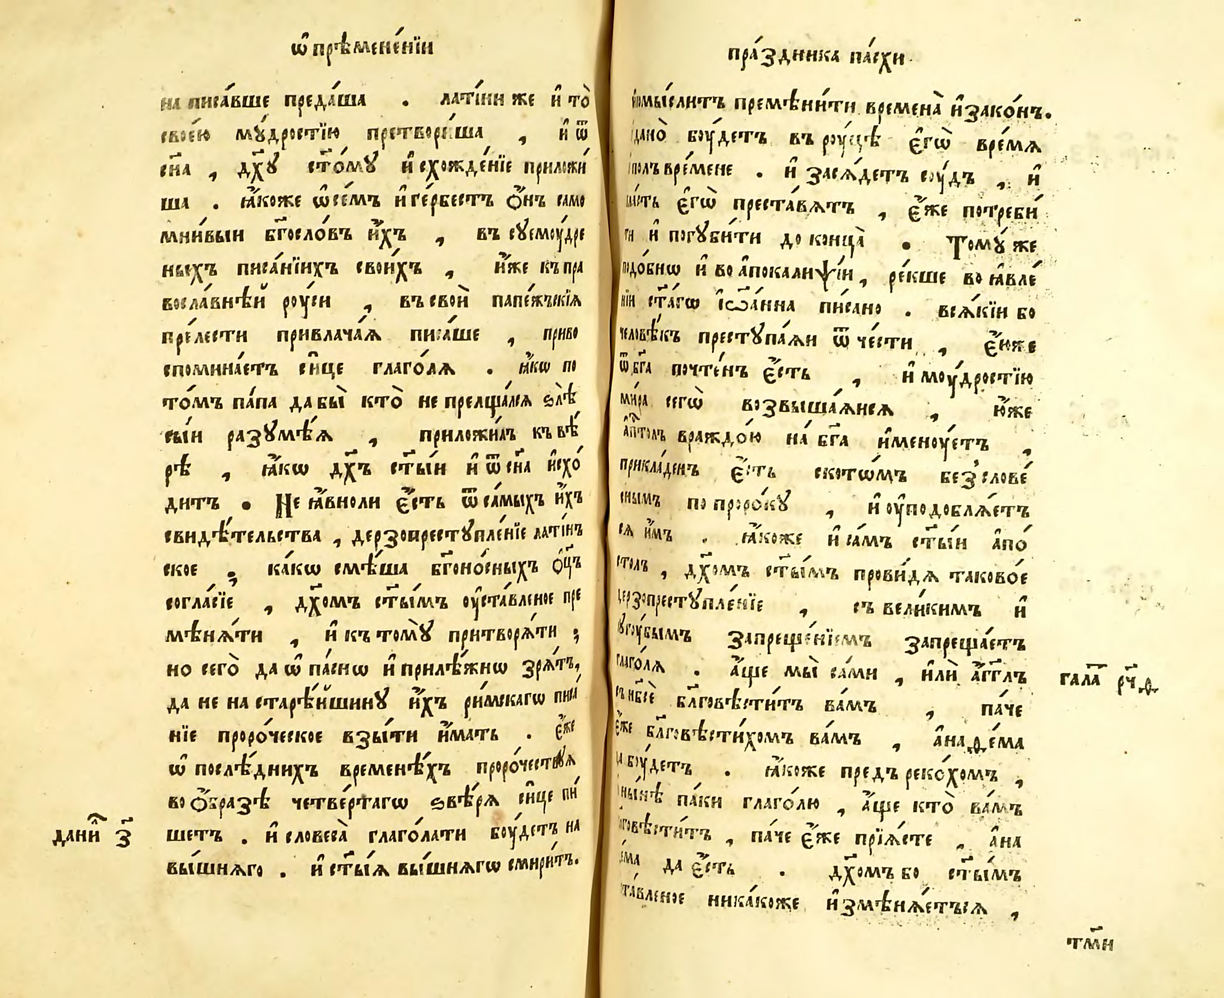 ѿ премене́нїи
на писа́вше преда́ша . лати́ни же и҆ то̀
свое́ю му́дростїю претвори́ша , и҆ ѿ
сн҃а , дх҃у ст҃о́му и҆схожде́нїе приложи́
ша . ꙗ҆́коже ѡ҆ се́мъ и҆ ге́рбестъ ѻ҆́нъ само
мни́выи бг҃осло́въ и҆́хъ , въ суемꙋ́дре
ныхъ писа́нїихъ свои́хъ , и҆́же къ пра
восла́внѣй рꙋ́си , въ свой папе́жъскїѧ
пре́лести привлача́ѧ писа́ше , приво
спомина́етъ си́це глаго́лѧ . ꙗ҆́кѡ по
то́мъ па́па да бы̀ кто̀ не прелща́лсѧ ѕлѣ̀
сы́и разумѣ́ѧ , приложи́лъ къ вѣ́
рѣ , ꙗ҆́кѡ дх҃ъ ст҃ы́и и҆ ѿ сн҃а и҆схо́
дитъ . Не ꙗ҆́вноли є҆́сть ѿ са́мыхъ и҆́хъ
свидѣ́тельства , дерзопреступле́нїе лати́нъ
ское ; ка́кѡ смѣ́ша бг҃оно́сныхъ ѻ҆ц҃ъ
согла́сїе , дх҃омъ ст҃ы́мъ ᲂу҆ста́вленое пре
мѣнѧ́ти , и҆ къ томꙋ̀ притворѧ́ти ;
но сего̀ да ѡ҆па́снѡ и҆ прилѣ́жнѡ зрѧ́тъ,
да не на старѣ́йшину и҆́хъ ри́мскагѡ писа́
нїе проро́ческое взы́ти и҆́мать . є҆́же
ѡ҆ послѣ́днихъ временѣ́хъ проро́чествуѧ
во ѻ҆́бразѣ четве́ртагѡ ѕвѣ́рѧ си́це пи́
шетъ . и҆ словеса̀ глаго́лати бꙋ́детъ на
вы́шнѧго . и҆ ст҃ы́ѧ вы́шнѧгѡ смири́тъ.
дани҃ и҆ з҃
пра́здника па́схи
и҆ помы́слитъ премѣни́ти времена̀ и҆ зако́нъ.
дано̀ бꙋ́детъ въ рꙋ́цѣ є҆гѡ̀ вре́мѧ
и҆ полъ вре́мене . и҆ засѧ́детъ сꙋ́дъ , и҆
вла́сть є҆гѡ̀ преста́вѧтъ , є҆́же потреби́
ти и҆ погуби́ти до конца̀ . Томꙋ́ же
подо́бнѡ и҆ во а҆покали́ѱїи , ре́кше во ꙗ҆вле́
нїи ст҃а́гѡ і҆ѡа́нна пи́сано . всѧ́кїи бо
человѣ́къ преступа́ѧи ѿ че́сти , є҆́юже
ѿ бг҃а почте́нъ є҆́сть , и҆ мꙋ́дростїю
ми́ра сегѡ̀ возвыша́ѧисѧ , ю҆́же
а҆п҃толъ враждо́ю на́ бг҃а и҆менꙋ́етъ ,
прикла́денъ є҆́сть скотѡ́мъ безслове́
снымъ по проро́ку , и҆ ᲂу҆подоблѧ́етъ
сѧ и҆́мъ . ꙗ҆́коже и҆ са́мъ ст҃ы́и а҆по́
столъ , дх҃омъ ст҃ы́мъ прови́дѧ таково́е
дерзопреступле́нїе , съ вели́кимъ и҆
сугу́бымъ запреще́нїемъ запреща́етъ
глаго́лѧ . а҆́ще мы̀ са́ми , и҆лѝ а҆́гг҃лъ
съ нб҃сѐ бл҃говѣсти́тъ ва́мъ , па́че
є҆́же бл҃говѣсти́хомъ ва́мъ , а҆на́ѳема
да бꙋ́детъ . ꙗ҆́коже предъ реко́хомъ ,
и҆ ны́нѣ па́ки глаго́лю , а҆́ще кто̀ ва́мъ
бл҃говѣсти́тъ , па́че є҆́же прїѧ́сте , а҆на́
ѳема да є҆́сть . дх҃омъ бо ст҃ы́мъ
ᲂу҆ста́вленое ника́коже и҆змѣнѧ́етъсѧ ,
гала҃ рч҃ѳ
тм҃и